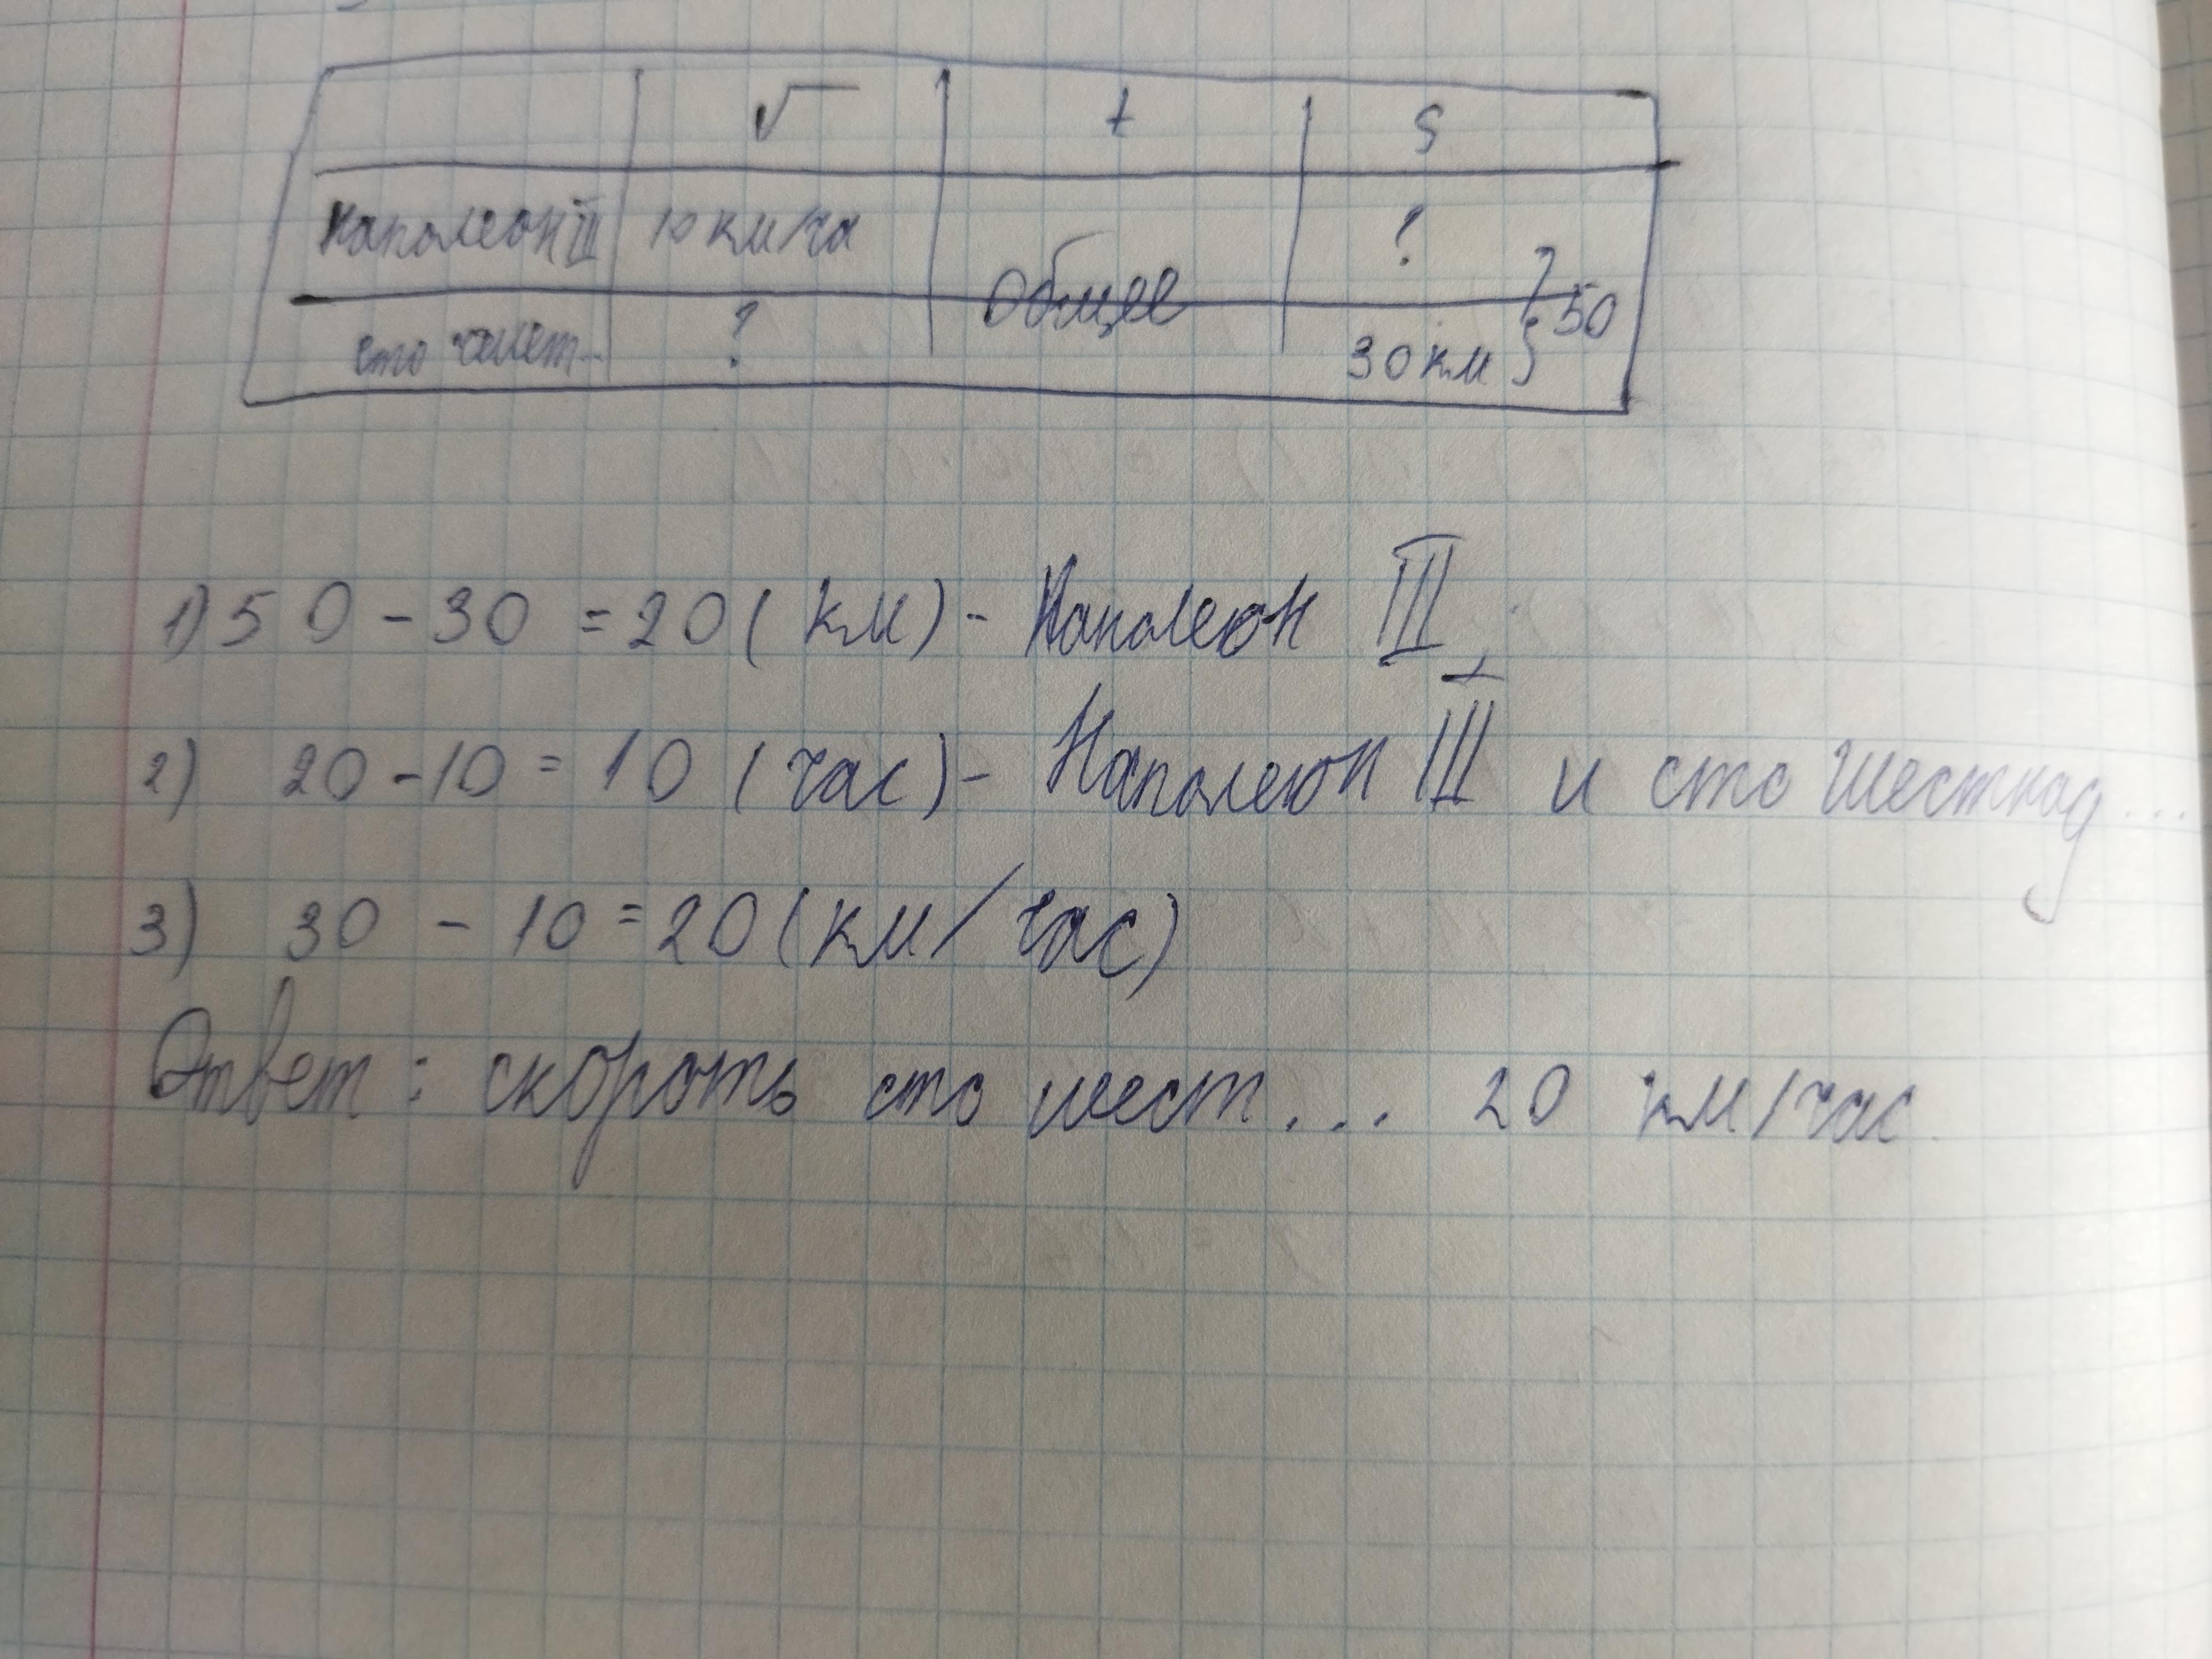 √ t S
Наполеон III 10 км/ча ?
Общее 50
сто ? 30 км
1) 50 - 30 = 20 (км) - Наполеон III
2) 20 - 10 = 10 (час) - Наполеон III и сто шестнад...
3) 30 - 10 = 20 (км/час)
Ответ: скороть сто шест... 20 км/час